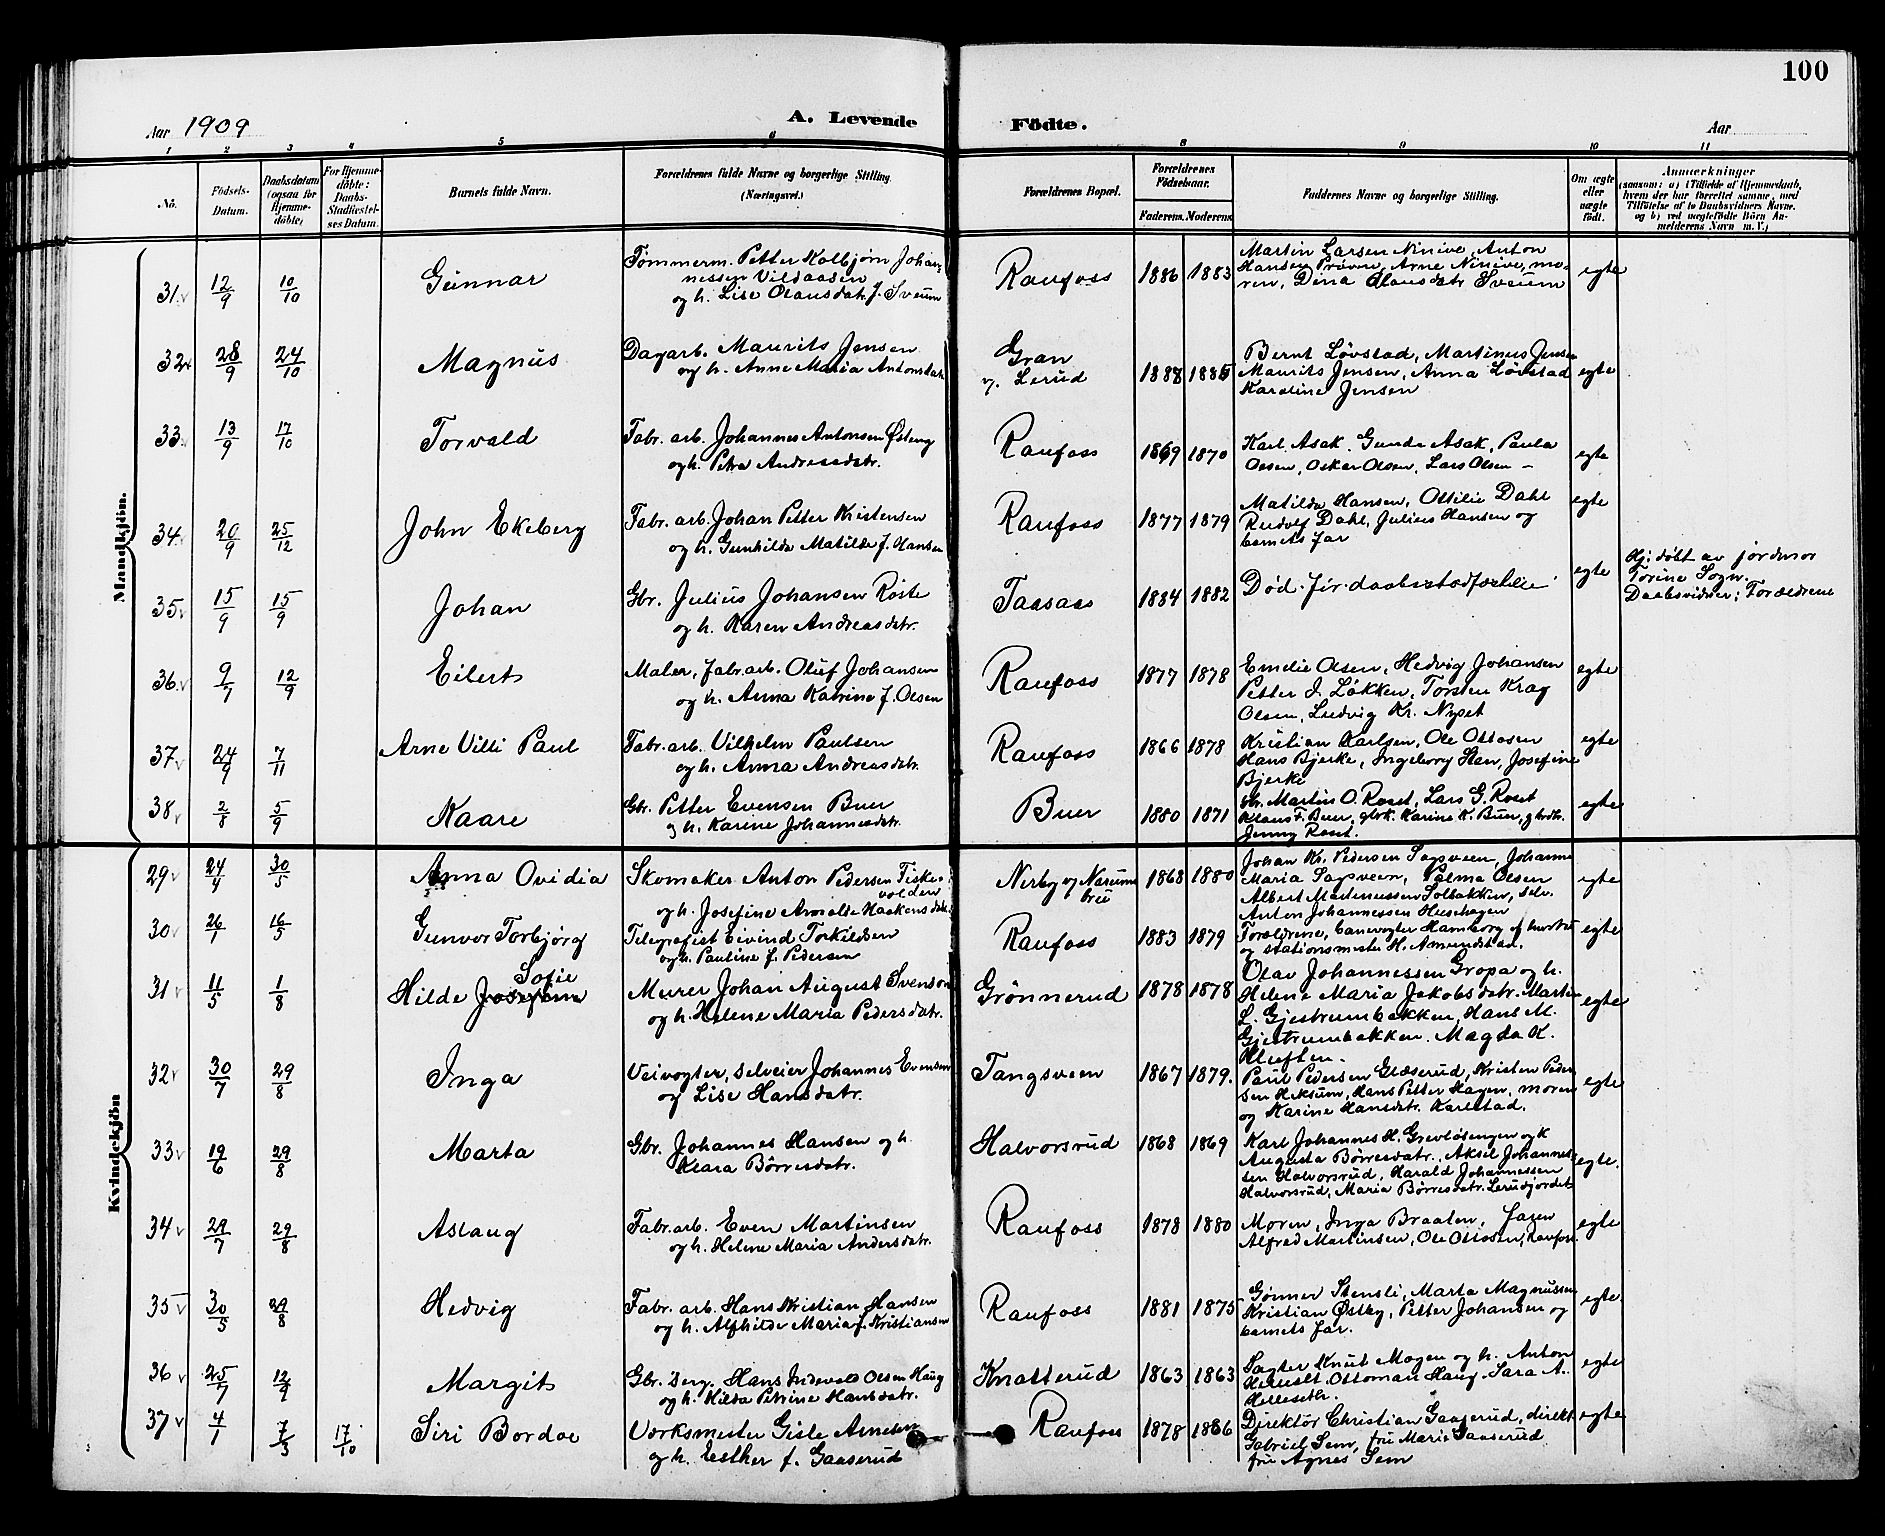 100
Aar 1909
A. Levende Födte.
Aar
1 2 3 4 5 6 8 9 10 11
No.
Födsels-Datum.
Daabsdatum (ogsaa for Hjemme-döbte)
For Hjemme-döbte: Daabs-Stadfæstel-ses Datum.
Barnets fulde Navn.
Forældrenes fulde Navne og borgerlige Stilling. (Næringsvei.)
Forældrenes Bopæl.
Forældrenes Födselsaar.
Faderens. Moderens
Faddernes Navne og borgerlige Stilling.
Om ægte eller uægte födt.
Anmærkninger
(saasom: a) Tilfælde af Hjemmedaab,
hvem der har forrettet samme, med
Tilföielse af to Daabsvidners Navne.
og b) ved uægtefödte Börn An-
melderens Navn m. V.)
Mandkjön.
31. 12/9 10/10 Gunnar
Tömmerm. Petter Kolbjörn Johan-
nessen Vildaasen
og h. Lise Olausdatr. f. Sveum
Raufoss 1886 1883
Martin Larsen Ninive, Anton
Hansen Pröven, Arne Ninive, mo-
ren, Dina Olausdatr Sveum
egte
32 28/9 24/10 Magnus
Dagarb. Maurits Jensen
og h. Anne Maria Antonsdatr
Gran
v. Lerud
1888 1885
Bernt Lövstad, Martinus Jensen
Maurits Jensen, Anna Lövstad
Karoline Jensen
egte
33 13/9 17/10 Torvald
Fabr. arb. Johannes Antonsen Österg
og h. Petra Andreasdatr.
Raufoss 1869 1870
Karl Asak. Gunda Asak, Paula
Olsen, Oskar Olsen, Lars Olsen –
egte
34 20/9 25/12 John Ekeberg
Fabr. arb. Johan Petter Kristensen
og h. Gunhilda Matilde f. Hansen
Raufoss 1877 1879
Matilda Hansen, Ottilie Dahl
Rudolf Dahl, Julius Hansen og
barnets far
egte
35 15/9 15/9 Johan
Gbr. Julius Johansen Röste
og h. Karen Andreasdatr.
Taasaas 1884 1882
Död för daabsstadfæstelse
egte
Hj. döbt av jordmor
Torine Sogn.
Daabsvidner: Forældrene
36. 9/7 12/9 Eilert
Maler, fabr arb. Oluf Johansen
og h. Anna Katrine f. Olsen
Raufoss 1877 1878
Emelie Olsen, Hedvig Johansen
Petter J. Lökken, Torsten Krag
Olsen, Ludvig Kr. Nyset
egte
37 24/9 7/11 Arne Villi Paul
Fabr. arb. Vilhelm Paulsen
og h. Anna Andreasdatr.
Raufoss 1866 1878
Kristian Karlsen, Ole Ottosen
Hans Bjerke, Ingeborg Hen, Josefine
Bjerke
egte
38 2/8 5/9 Kaare
Gbr. Petter Evensen Buer
og h. Karine Johannesdatr.
Buer 1880 1871
Martin O. Roset, Lars G. Roset
Klaus F. Buer, Karine K. Buer,
Jenny Roset.
egte
Kvindekjön
29 24/4 30/5 Anna Ovidia
Skomaker Anton Pedersen Fiske-
volden
og h. Josefine Amalie Haakensdatr.
Nerby v/ Narum
1868 1880
Johan Kr. Pedersen Sagsveen, Johanne
Maria Sagsveen, Palma Olsen
Albert Martinussen Solbakken, selv.
Anton Johannessen Hushagen
egte
30 26/1 16/5 Gunvor Torbjörg
Telegrafist Eivind Torkildsen
og h. Pauline f. Pedersen
Raufoss 1883 1879
Forældrene, banevogter Hamborg og hustru
og stationsmester H. Amundstad.
egte
31 11/5 1/8 Hilde Josefine Sofie
Murer Johan August Svenson
og h. Helene Maria Pedersdatr.
Grönnerud 1878 1878
Olav Johannessen Gropa og h.
Helene Maria Jakobsdatr. Martin
L. Gjestrumbakken, Hans M.
Gjestrumbakken. Magda K.
Kluften.
egte
32 30/7 29/8 Inga
Veivogter, selveier Johannes Evensen
og Lise Hansdatr.
Tangsveen 1867 1879.
Paul Pedersen Glæserud, Kristen Peder-
sen Heksum, Hans Petter Hagen, moren
og Karine Hansdatr. Karlstad.
egte
33 19/6 29/8 Marta
Gbr. Johannes Hansen og h.
Klara Börresdatr.
Halvorsrud 1868 1869
Karl Johannes H. Grevlösengen og k
Augusta Börresdatr., Aksel Johannes-
sen Halvorsrud, Harald Johannessen
Halvorsrud, Maria Börresdatr. Lerudjordet
egte.
34 29/7 29/8 Aslaug
Fabr. arb. Even Martinsen
og h. Helene Maria Andersdatr.
Raufoss 1878 1880
Moren, Inga Braaten, faren
Alfred Martinsen, Ole Ottosen, Raufoss.
egte
35 30/5 29/8 Hedvig
Fabr. arb. Hans Kristian Hansen
og h. Alfhilde Maria f. Kristiansen
Raufoss 1881 1875
Gönner Stensli, Marta Magnussen
Kristian Østby, Petter Johansen og
barnets far.
egte
36 25/7 12/9 Margit
Gbr. Serg. Hans Indevald Olsen Haug
og h. Hilda Petrine Hansdatr.
Knatterud 1863 1863
Sagfer Knut Mogen og h. Anton
Ottoman Haug. Sara A.
Helleseth.
egte
37 4/1 7/3 17/10 Siri Bordoe
Værksmester Gisle Arnesen
og h. Esther f. Gaaserud
Raufoss 1878 1886
Direktör Christian Gaaserud, direkt
Gabriel Sem, fru Marie Gaaserud
fru Agnes Sem
egte